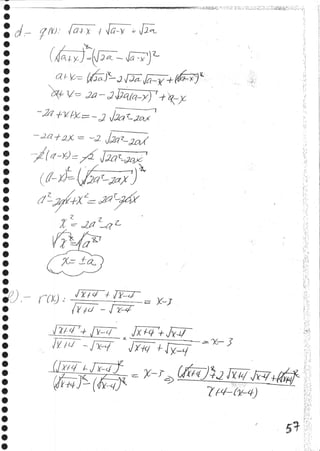 d.- q(x): √a+x + √a-x = √2a
(√a+x)² = (√2a - √a-x)²
a+x = (√2a)² - 2√2a √a-x + (√a-x)²
a+x = 2a - 2√2a(a-x) + a-x
-2a+x+x = -2√2a²-2ax
-2a+2x = -2√2a²-2ax
-2(a-x) = -2√2a²-2ax
(a-x)² = (√2a²-2ax)²
a²-2ax+x² = 2a²-2ax
x² = 2a²-a²
√x² = √a²
x = ±a
e).- r(x): √x+4 + √x-4 / √x+4 - √x-4 = x-3
√x+4 + √x-4 / √x+4 - √x-4 · √x+4 + √x-4 / √x+4 + √x-4 = x-3
(√x+4 + √x-4)² / (√x+4)² - (√x-4)² = x-3 ⇒ (√x+4)² + 2√x+4 √x-4 + (√x-4)² / x+4-(x-4)
57